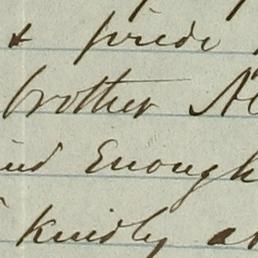 & pride
brother Al
ind Enough
kindly at